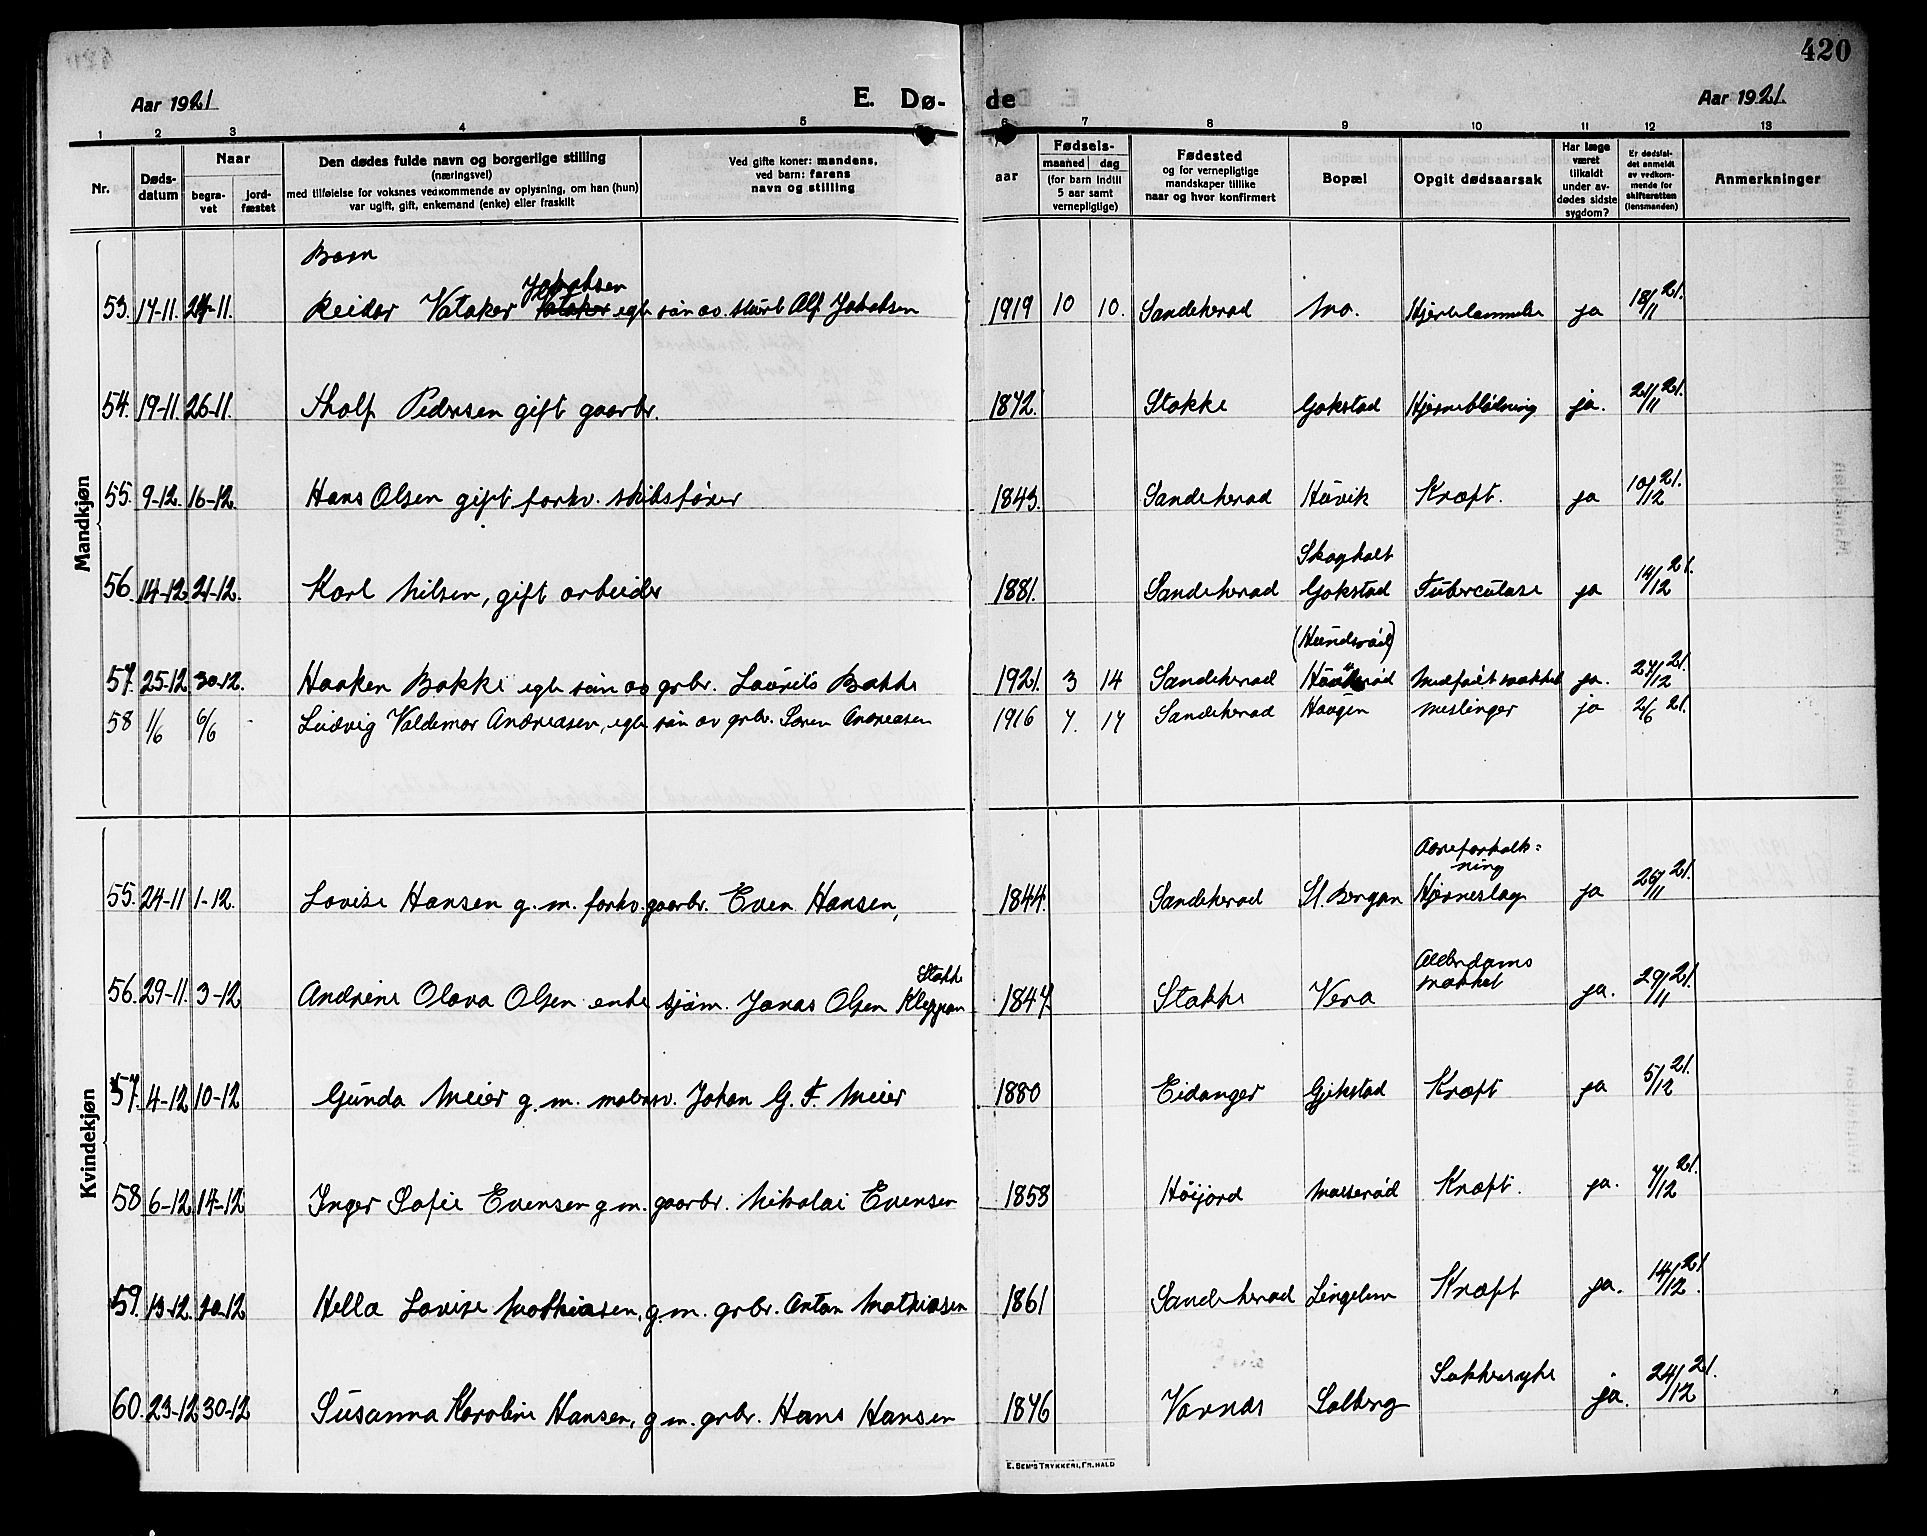 420
Aar 1921
E. Dø-
de
Aar 1921.
1 2 3 4 5 6 7 8 9 10 11 12 13
Nr.
Døds-
datum
Naar
begra-
vet
jord-
fæstet
Den dødes fulde navn og borgerlige stilling
(næringsvei)
med tilføielse for voksnes vedkommende av oplysning, om han (hun)
var ugift, gift, enkemand (enke) eller fraskilt
Ved gifte koner: mandens,
ved barn: farens
navn og stilling
Fødsels-
aar
maaned dag
(for barn indtil
5 aar samt
vernepligtige)
Fødested
og for vernepligtige
mandskaper tillike
naar og hvor konfirmert
Bopæl
Opgit dødsaarsak
Har læge
været
tilkaldt
under av-
dødes sidste
sygdom?
Er dødsfal-
det anmeldt
av vedkom-
mende for
skifteretten
(lensmanden)
Anmerkninger
Mandkjøn
Barn
Jakobsen
53. 17-11. 24-11. Reidar Vataker Vataker egte søn av styrb. Alf Jakobsen 1919 10 10. Sandeherad Mo. Hjertelammelse ja 18/11 21.
54. 19-11. 26-11. Thalf Pedersen gift gaarbr. 1842. Stokke Gokstad Hjerneblødning ja. 21/11 21.
55. 9-12. 16-12. Hans Olsen gift forhv. skibsfører 1843. Sandeherad Haavik Kræft. ja 10/12 21.
Skogholt
56. 14-12. 21-12. Karl Nilsen, gift arbeider 1881. Sandeherad Gokstad Tuberculose ja 14/12 21.
(Hundsrød)
57. 25-12 30-12. Haaken Bakke egte søn av grbr. Laurits Bakke 1921. 3 14 Sandeherad Medfødt svakhet ja. 27/12 21.
58 1/6 6/6 - Ludvig Valdemar Andreasen, egte søn av grbr. Søren Andreasen 1916 7. 17 Sandeherad Haugen Meslinger ja 2/6 21.
Kvindekjøn
Aareforkalk-
ning
55. 24-11 1-12. Lovise Hansen g. m. forhv. gaarbr. Even Hansen, 1844. Sandeherad St. Bergan Hjerneslag ja 26/11 21.
Stokke
Alderdoms
56. 29-11. 3-12 Andrine Olava Olsen enke sjøm. Jonas Olsen Kleppan 1847. Stokke Vera svakhet ja. 29/11 21.
57. 4-12 10-12 Gunda Meier g. m. malerm. Johan G. F. Meier 1880 Eidanger Gjekstad Kræft ja 5/12 21.
58 6-12 14-12 Inger Sofie Evensen g m. gaarbr. Nikolai Evensen 1858 Høijord Masserød Kræft. ja. 7/12 21.
59. 13-12. 20-12 Hella Lovise Mathiasen, g m. grbr. Anton Mathiasen 1861 Sandeherad Lingelem Kræft ja. 14/12 21.
60. 23-12 30-12 Susanna Karoline Hansen, g m. grbr. Hans Hansen 1846 Varnæs Solberg Sukkersyke ja. 24/12 21.
E. SEM'S TRYKKERI, FR.HALD